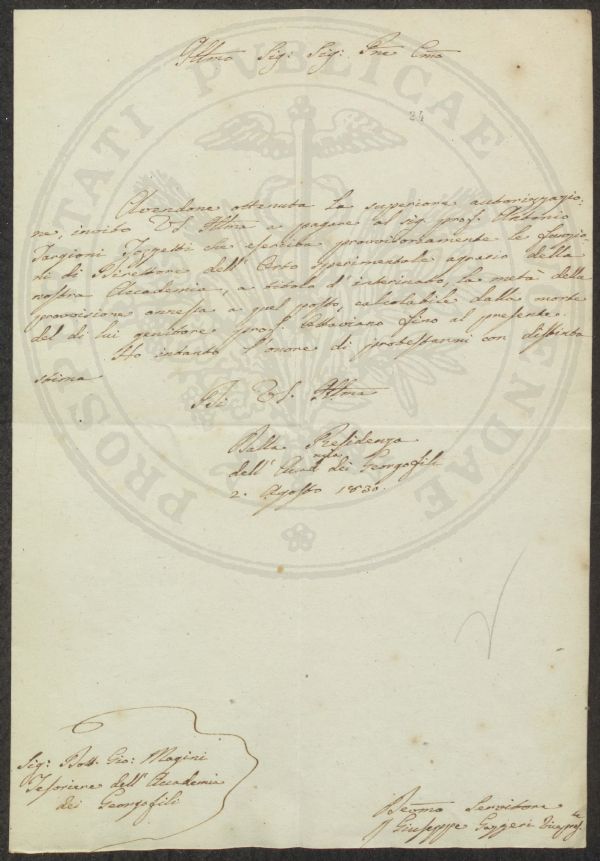 Illmo Sig: Sig: Pne Cmo
34
Avendone ottenuta la superiore autorizzazio
ne, invito VS. Illma a pagare al sig. prof. Antonio
Targioni Tozzetti che esercita provvisoriamente le funzio
ni di Direttore dell'Orto sperimentale agrario della
nostra Accademia, a titolo d'interinato, la metà della
provvisione annessa a quel posto, calcolabile dalla morte
del di lui genitore prof. Ottaviano fino al presente.
Ho intanto l'onore di protestarmi con distinta
stima
Di VS. Illma
Dalla Presidenza
dell'Accad. dei Georgofili
2. Agosto 1830.
Sig: Dott. Gio: Magini
Tesoriere dell'Accademia
dei Georgofili
Devmo Servitore
Giuseppe Gazzeri Vicepres.te
PROSPERITATI PUBLICAE AUGENDAE